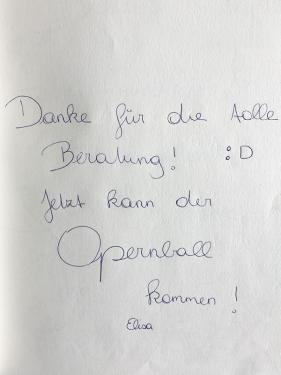 Danke für die tolle
Beratung! :D
Jetzt kann der
Opernball
kommen!
Elisa